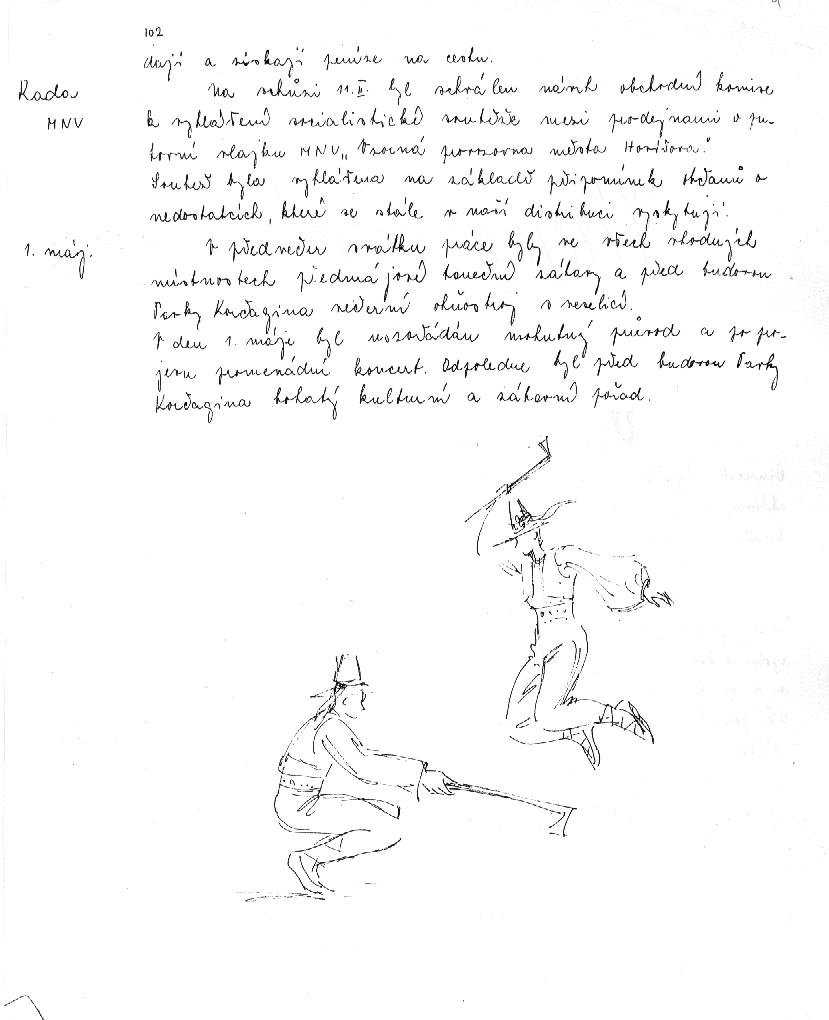 102
dají a získají peníze na cestu.
Rada Na schůzi 11.II. byl schválen návrh obchodní komise
MNV k vyhlášení socialistické soutěže mezi prodejnami o pu-
tovní vlajku MNV „Vzorná provozovna města Hořířova."
Soutěž byla vyhlášena na základě připomínek občanů o
nedostatcích, které se stále v naší distribuci vyskytují.
1. máj. V předvečer svátku práce byly ve všech vhodných
místnostech předmájové taneční zábavy a před budovou
Parky Korčagina večerní ohňostroj s veselicí.
V den 1. máje byl uspořádán mohutný průvod a po
jeho promenádní koncert. Odpoledne byl před budovou Parky
Korčagina bohatý kulturní a zábavní pořad.